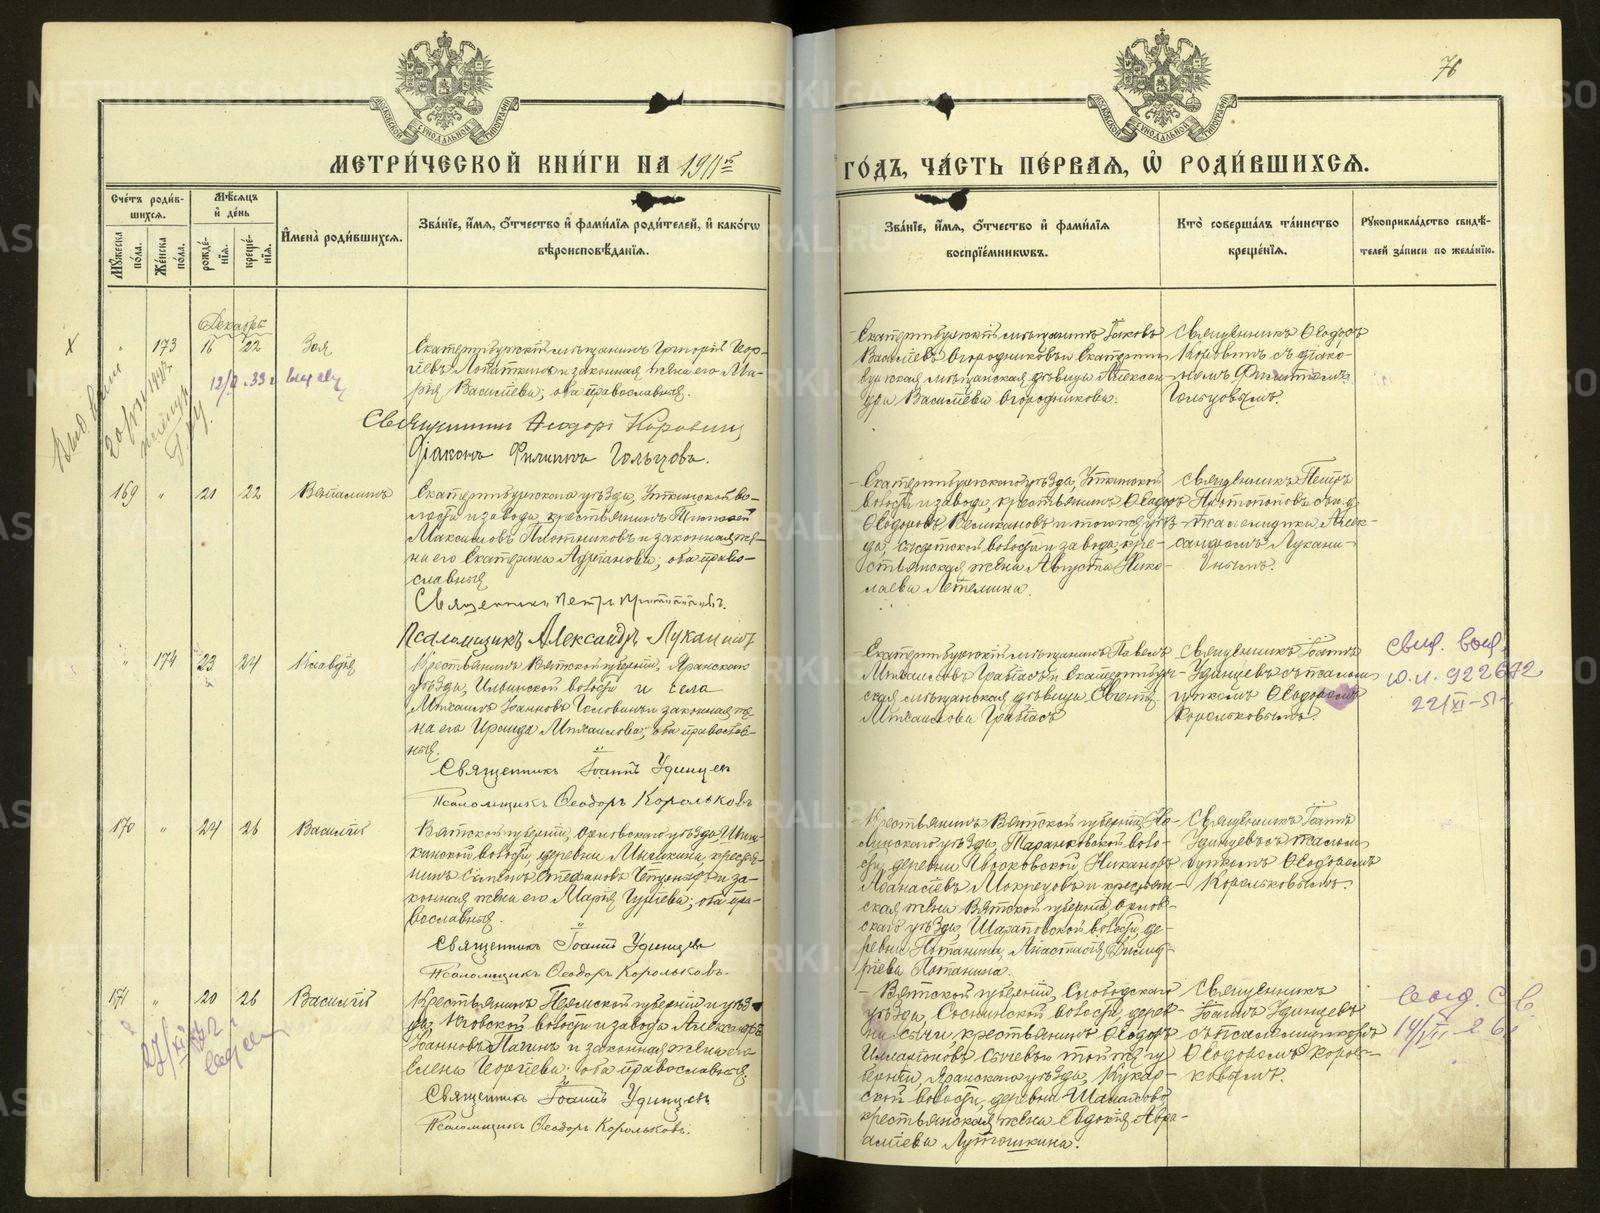 76
МЕТРИ́ЧЕСКОЙ КНИ́ГИ НА 1911й
ГО́ДЪ, ЧА́СТЬ ПЕ́РВАѦ, Ѡ҆ РОДИ́ВШИХСѦ.
Сче́тъ роди́в-
шихсѧ.
Мꙋ́жеска по́ла.
Же́нска по́ла.
Мѣ́сѧцъ
и҆ де́нь
рожде́-
нїѧ.
креще́-
нїѧ.
И҆мена̀ роди́вшихсѧ.
Зва́нїе, и҆́мѧ, ѻ҆́тчество и҆ фами́лїѧ роди́телей, и҆ како́гѡ
вѣроисповѣ́данїѧ.
Зва́нїе, и҆́мѧ, ѻ҆́тчество и҆ фами́лїѧ
воспрїе́мникѡвъ.
Кто̀ соверша́лъ та́инство
креще́нїѧ.
Рꙋкоприкла́дство свидѣ́-
телей за́писи по жела́нїю.
Декабрь
173 16 22 Зоя
Екатеринбургскiй мѣщанинъ Григорiй Геор-
гiевъ Лопаткинъ и законная жена его Ма-
рiя Васильева; оба православные.
Священникъ Ѳеодоръ Коровинъ
Дiаконъ Филиппъ Гольцовъ.
Екатеринбургскiй мѣщанинъ Iаковъ
Васильевъ Огородниковъ и Екатерин-
бургская мѣщанская дѣвица Алексан-
дра Васильева Огородникова.
Священникъ Ѳеодоръ
Коровинъ съ дiако-
номъ Филиппомъ
Гольцовымъ.
169 " 21 22 Венiаминъ
Екатеринбургскаго уѣзда, Уткинской во-
лости и завода, крестьянинъ Тимофей
Максимовъ Плотниковъ и законная же-
на его Екатерина; оба право-
славные
Священникъ Петръ Протопоповъ.
Псаломщикъ Александръ Луканинъ
Екатеринбургскаго уѣзда, Уткинской
волости и завода, крестьянинъ Ѳеодоръ
Ѳеодоровъ Великановъ и того же уѣз-
да, Сысертской волости и завода, кре-
стьянская жена Августа Нико-
лаева Летемина.
Священникъ Петръ
Протопоповъ съ
псаломщикомъ Алек-
сандромъ Лукани-
нымъ.
" 174 23 24 Клавдiя
Крестьянинъ Вятской губернiи, Яранскаго
уѣзда, Ильинской волости и села
Михаилъ Iоанновъ и законная же-
на его Ираида Михайлова; оба православ-
ные.
Священникъ Iоаннъ Удинцевъ
Псаломщикъ Ѳеодоръ Корольковъ
Екатеринбургскiй мѣщанинъ Павелъ
Михайловъ и Екатеринбург-
ская мѣщанская дѣвица
Михайлова
Священникъ Iоаннъ
Удинцевъ съ псалом-
щикомъ Ѳеодоромъ
Корольковымъ.
свид. выд.
Ю.Л. 922672
22/XI-51
170 " 24 26 Василiй
Вятской губернiи, Орловскаго уѣзда,
волости, деревни, кресть-
нинъ Стефановъ и за-
конная жена его Марiя Гурiева; оба пра-
вославные.
Священникъ Iоаннъ Удинцевъ
Псаломщикъ Ѳеодоръ Корольковъ.
Крестьянинъ Вятской губернiи, Но-
линскаго уѣзда, Таранковской воло-
сти, деревни, Никаноръ
Аѳанасiевъ Мокрецовъ и крестьян-
ская жена Вятской губернiи Орлов-
скаго уѣзда, Шараповской волости, де-
ревни Потанины, Анастасiя Димит-
рiева Потанина.
Священникъ Iоаннъ
Удинцевъ съ псалом-
щикомъ Ѳеодоромъ
Корольковымъ.
171 " 20 26 Василiй
Крестьянинъ Пермской губернiи и уѣз-
да, Юговской волости и завода Александръ
Iоанновъ Пачинъ и законная жена его
Елена Георгiева; оба православные.
Священникъ Iоаннъ Удинцевъ
Псаломщикъ Ѳеодоръ Корольковъ.
Вятской губернiи, Слободскаго
уѣзда, Соснинской волости, дерев-
ни Сычи, крестьянинъ Ѳеодоръ
Илларiоновъ Сычевъ и той же гу-
бернiи, Яранскаго уѣзда, Кукар-
ской волости, деревни Шалагово,
крестьянская жена Евдокiя Авра-
амiева Лутошкина.
Священникъ
Iоаннъ Удинцевъ
съ псаломщикомъ
Ѳеодоромъ Король-
ковымъ.